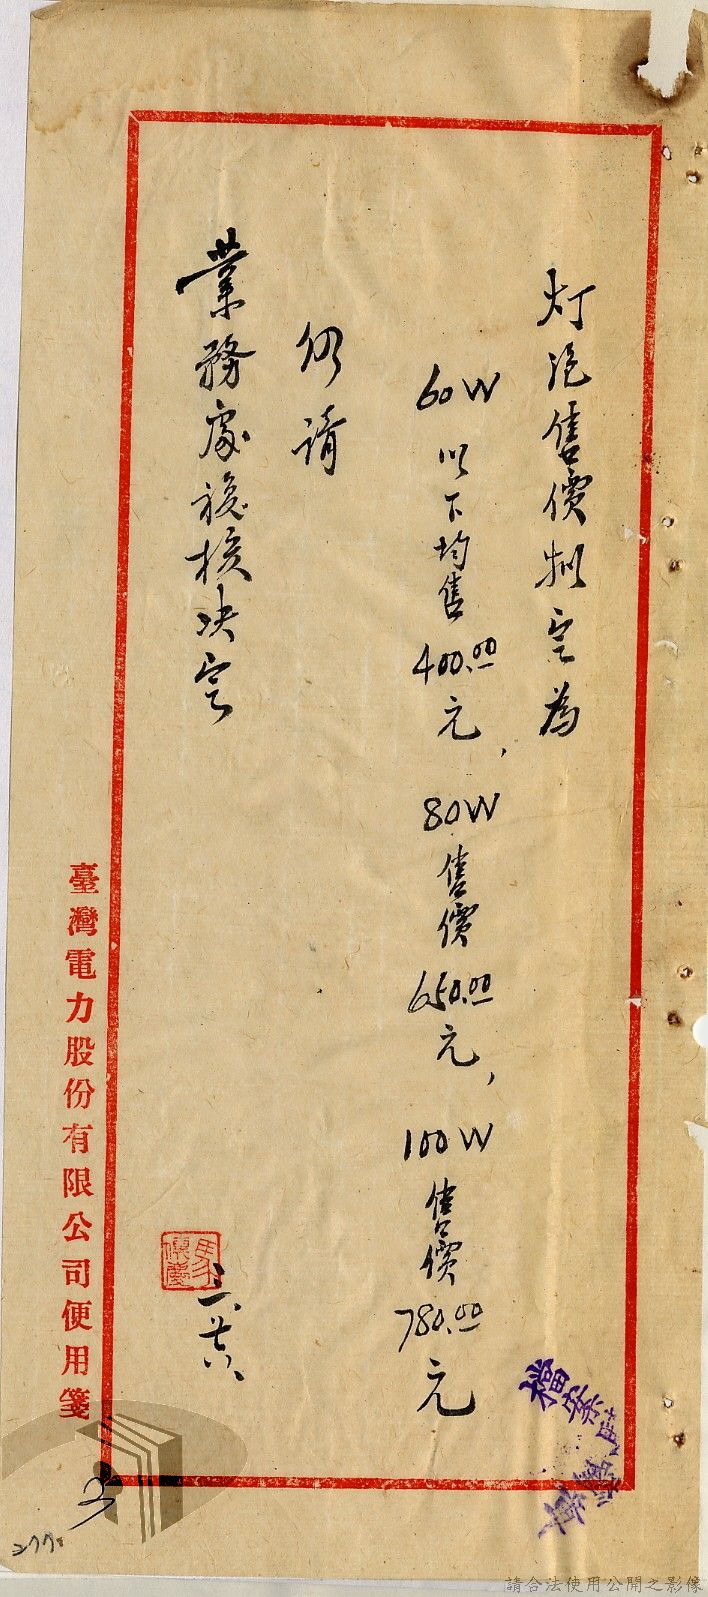 灯泡售價擬定為
60W以下均售400.00元,80W售價650.00元,100W售價780.00元
仍請
業務處複核决定
三、廿六、
臺灣電力股份有限公司便用箋
請合法使用公開之影像